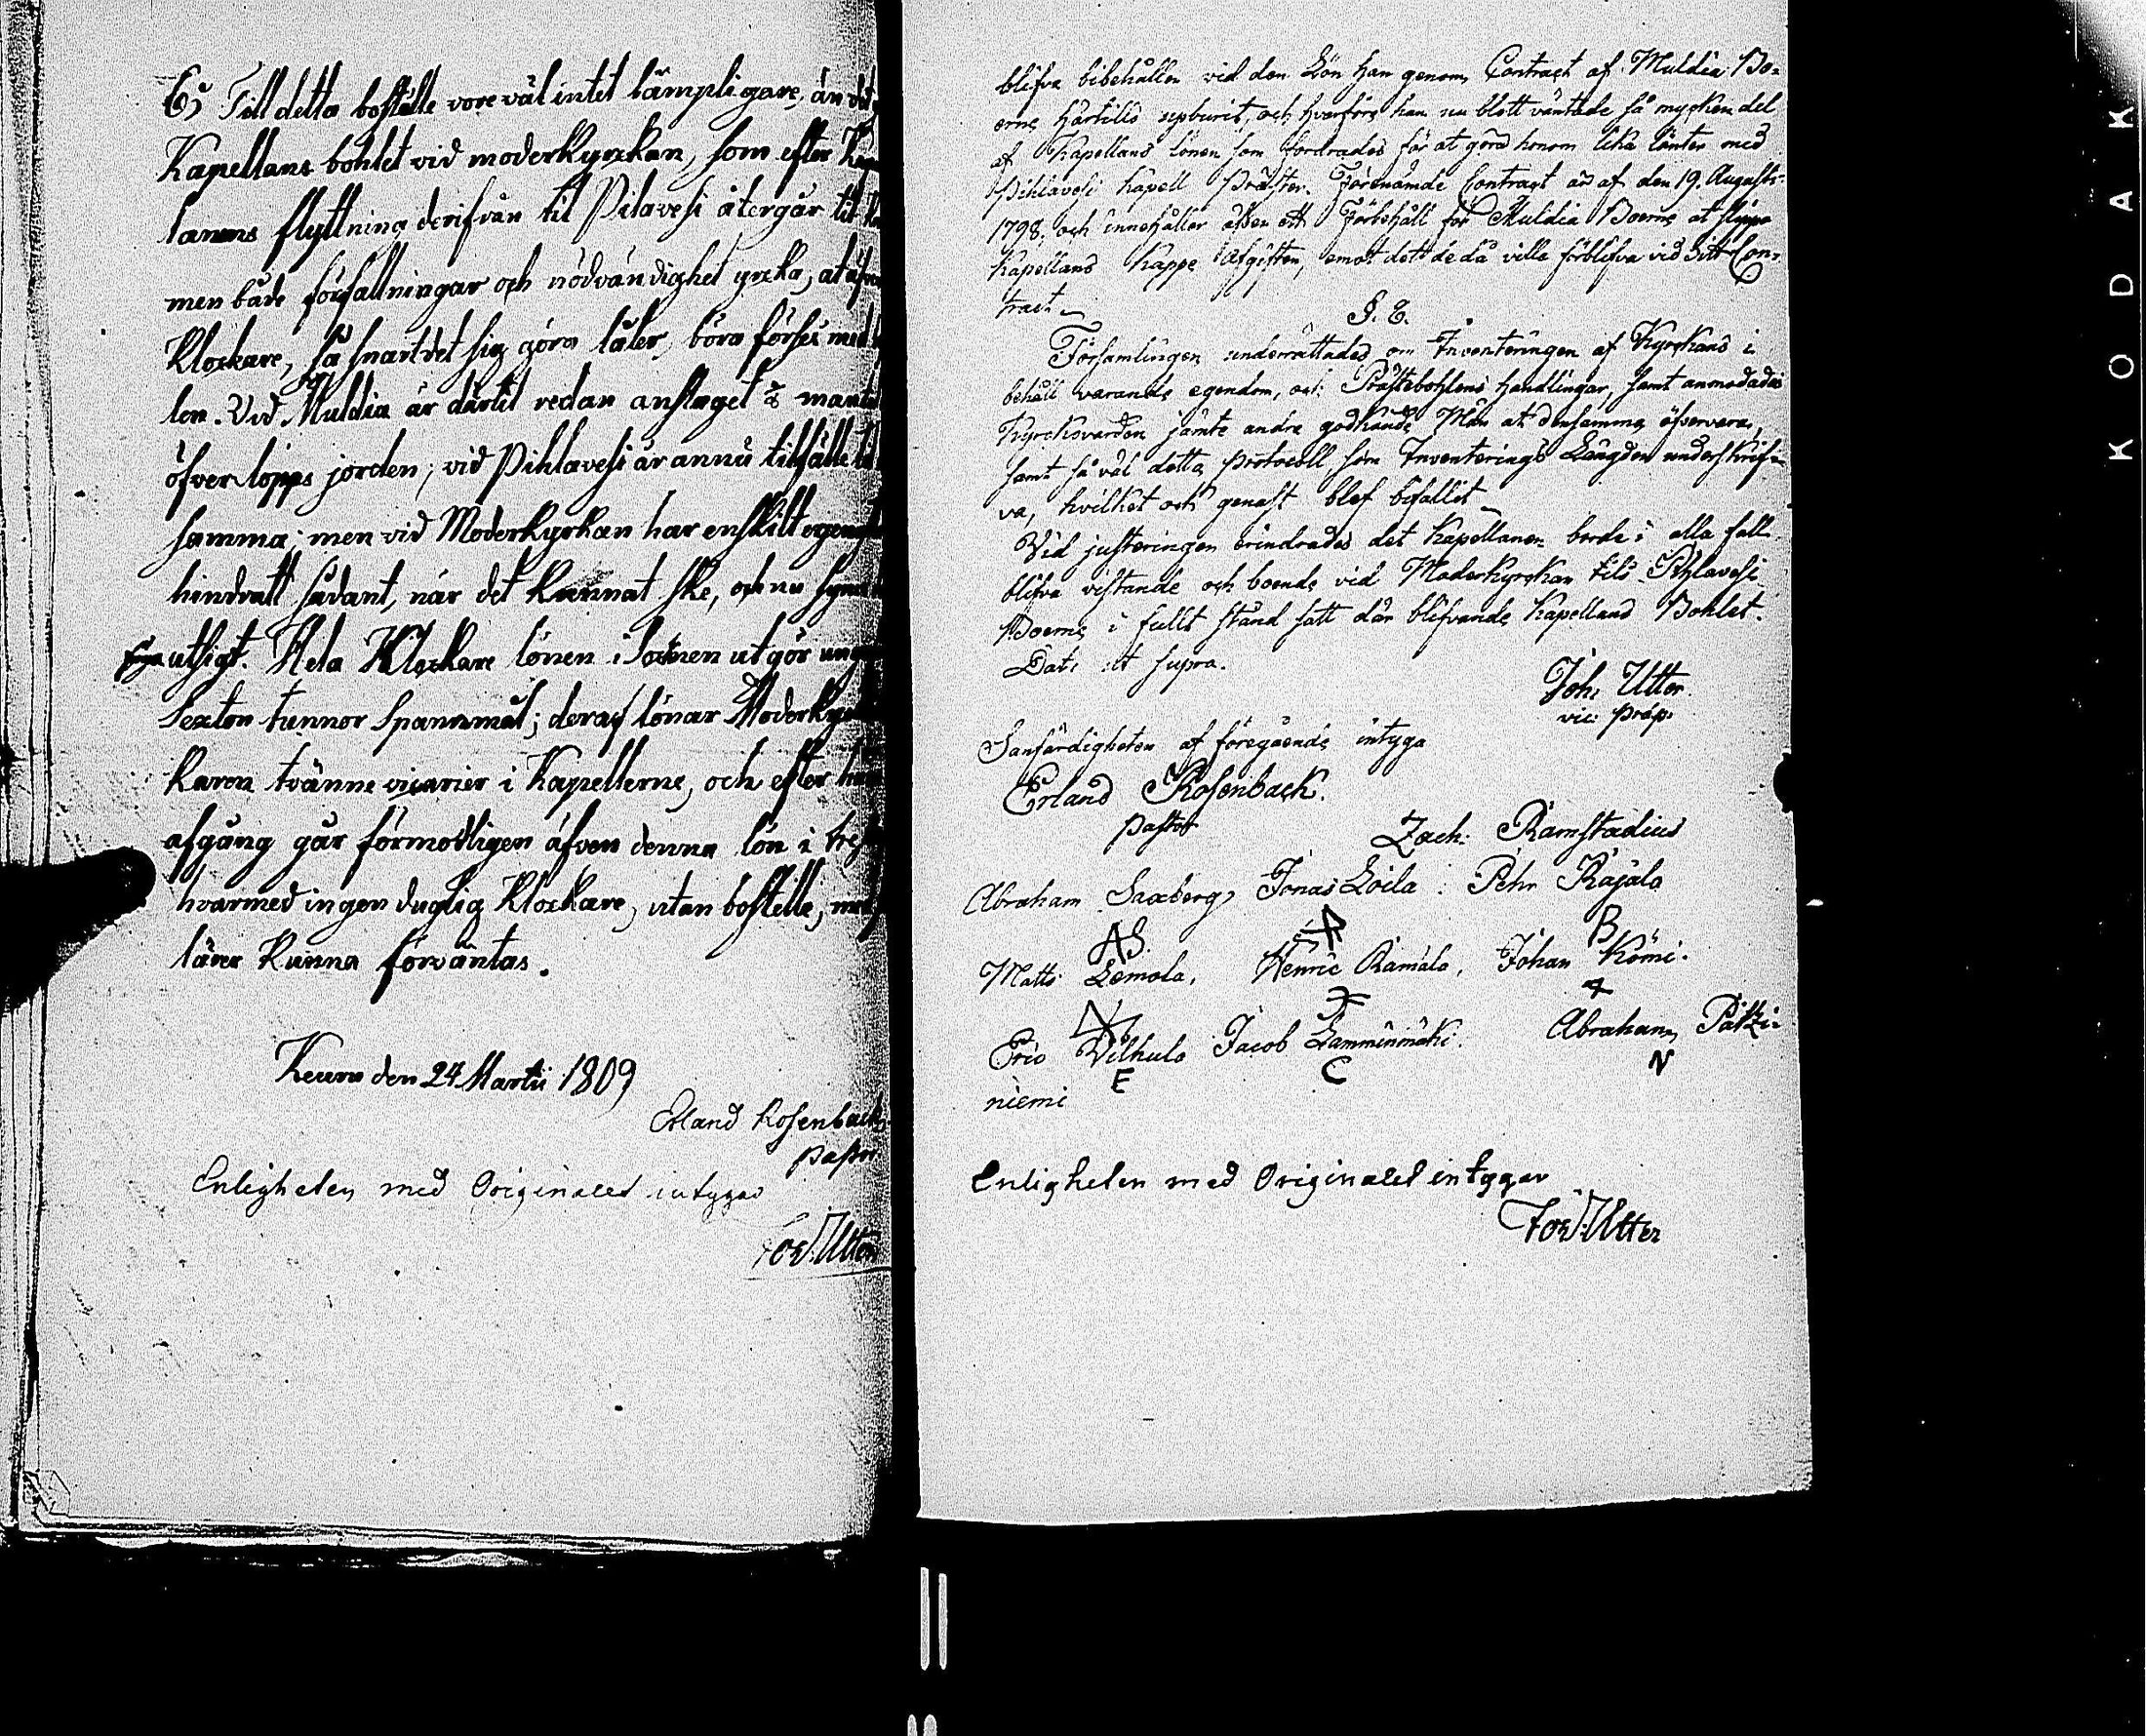 E, Till detta boställe vore väl intet lämpligare, än det
Kapellans bohlet vid moderkyrkan, som efter
lanens flyttning derifrån til Pilavesi återgår til
men både författningar och nödvändighet yrcka, at
Klockare, så snart det sig göra låter, böra förses med
len. Vid Muldia är därtil redan anslaget mantal
öfverlopps jorden; vid Pihlavesi är annu tillfälle
samma; men vid Moderkyrkan har enskilt
hindratt sådant, när det kunnat ske, och nu
utsigt. Hela Klockare lönen i Socknen utgör
Sexton tunnor Spannmål; deraf lönar Moderkyrko
karen tvänne vicarier i Kapellerne, och efter
afgång går förmodligen äfven denna lön i
hvarmed ingen duglig Klockare, utan boställe,
lärer kunna förväntas.
Keuru den 24 Martii 1809
Erland Rosenback
Pastor
Enligheten med Originalet intygar
Joh. Utter
blifva bibehållen vid den Lön han genom Contract af Muldia Bo-
erne härtills upburit, och hvarföre han nu blott väntade så mycken del
af Kapellans lönen som fordrades för at göra honom lika lönter med
Pihlavesi Kapell Präster. Förenämde Contract är af den 19. Augusti
1798, och innehåller äfven ett Förbehåll för Muldia Boerne at slippa
Kapellans Kappe afgiften, emot det de då ville förblifva vid sitt Con-
tract.
§. 6.
Församlingen underrättades om Inventeringen af Kyrckans i
behåll varande egendom, och Prästebohlens handlingar, samt anmodades
Kyrckovärden jämte andra godkände Män at densamma öfvervara,
samt så väl detta Protocoll som Inventerings Längden underskrif-
va, hvilket och genast blef bifallit.
Vid justeringen erindrades det Kapellanen borde i alla fall
blifva vistande och boende vid Moderkyrckan tils Pihlavesi
Boerne i fullt stånd satt där blifvande Kapellans Bohlet.
Dat. ut supra.
Joh. Utter
vic. Præp.
Sanfärdigheten af föregående intyga
Erland Rosenback.
Pastor
Zach. Ramstadius
Abraham Saxberg, Jonas Loila Pehr Rajala
AS. R B
Matts Lemola, Henric Ramala, Johan Kömi.
Eric Vilhula Jacob Lamminmäki. Abraham Pätzi-
E C N
niemi
Enligheten med Originalet intygar
Joh. Utter
KODAK